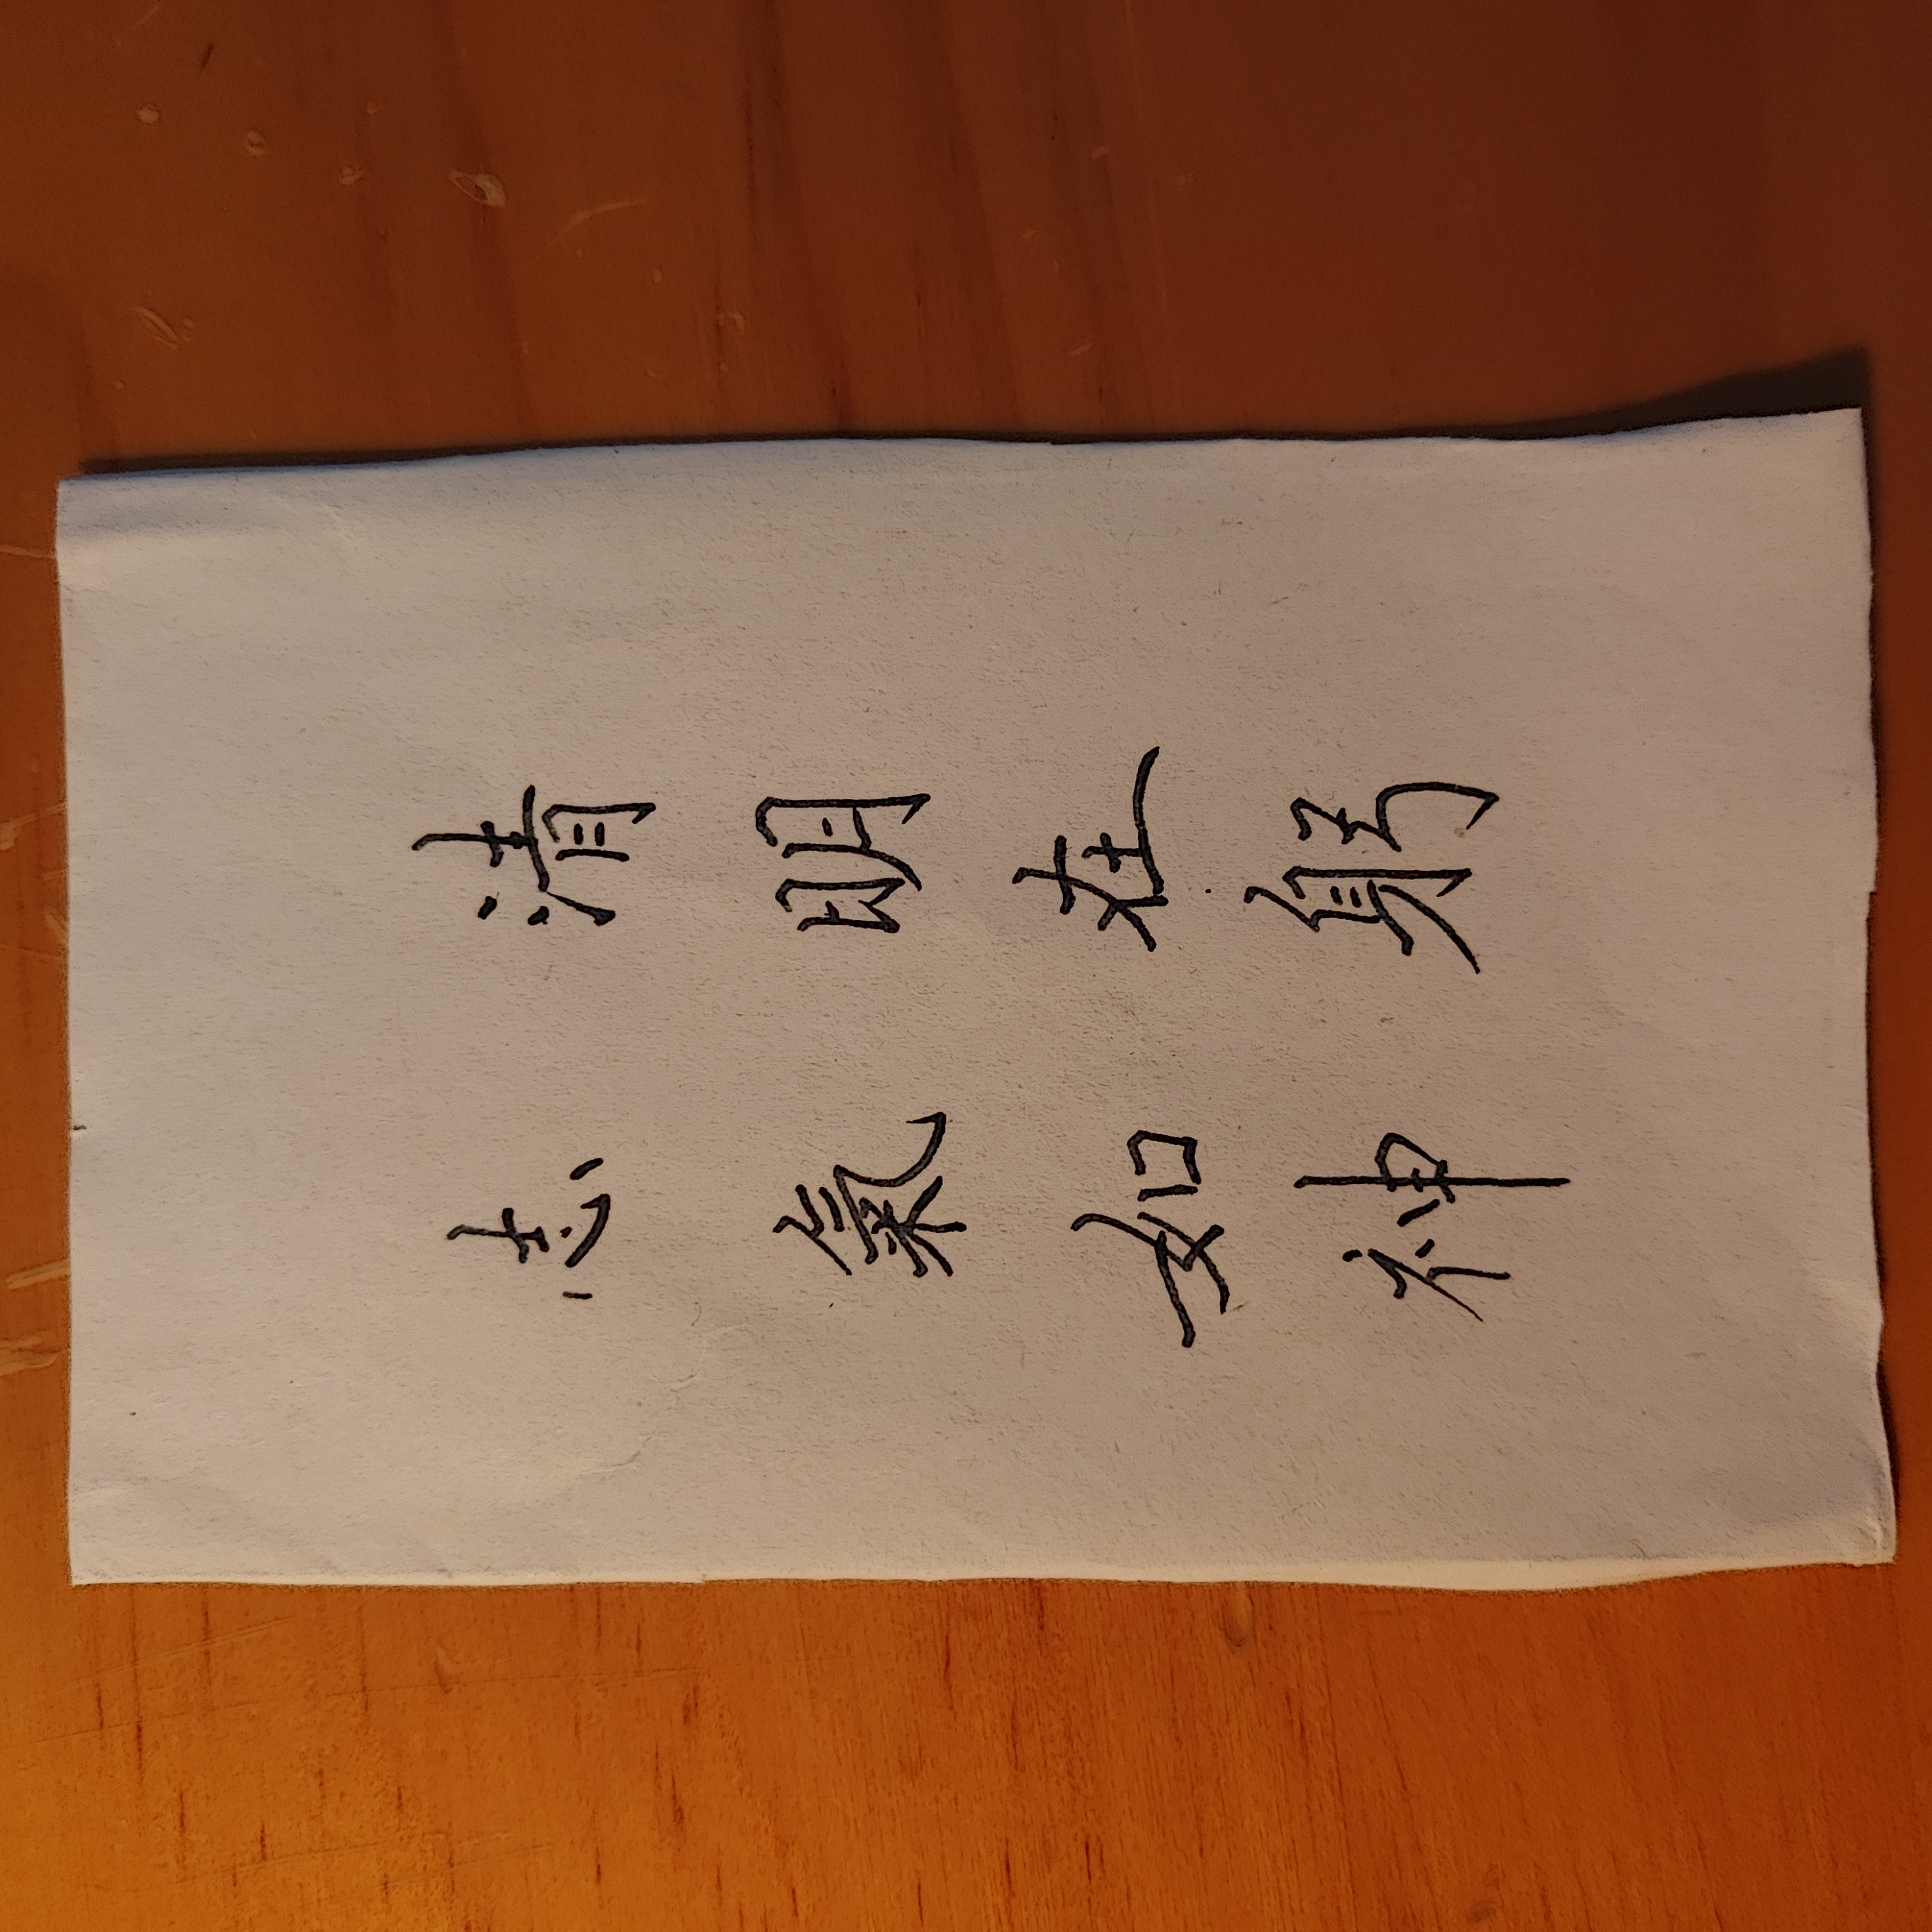 清明在躬
志氣如神